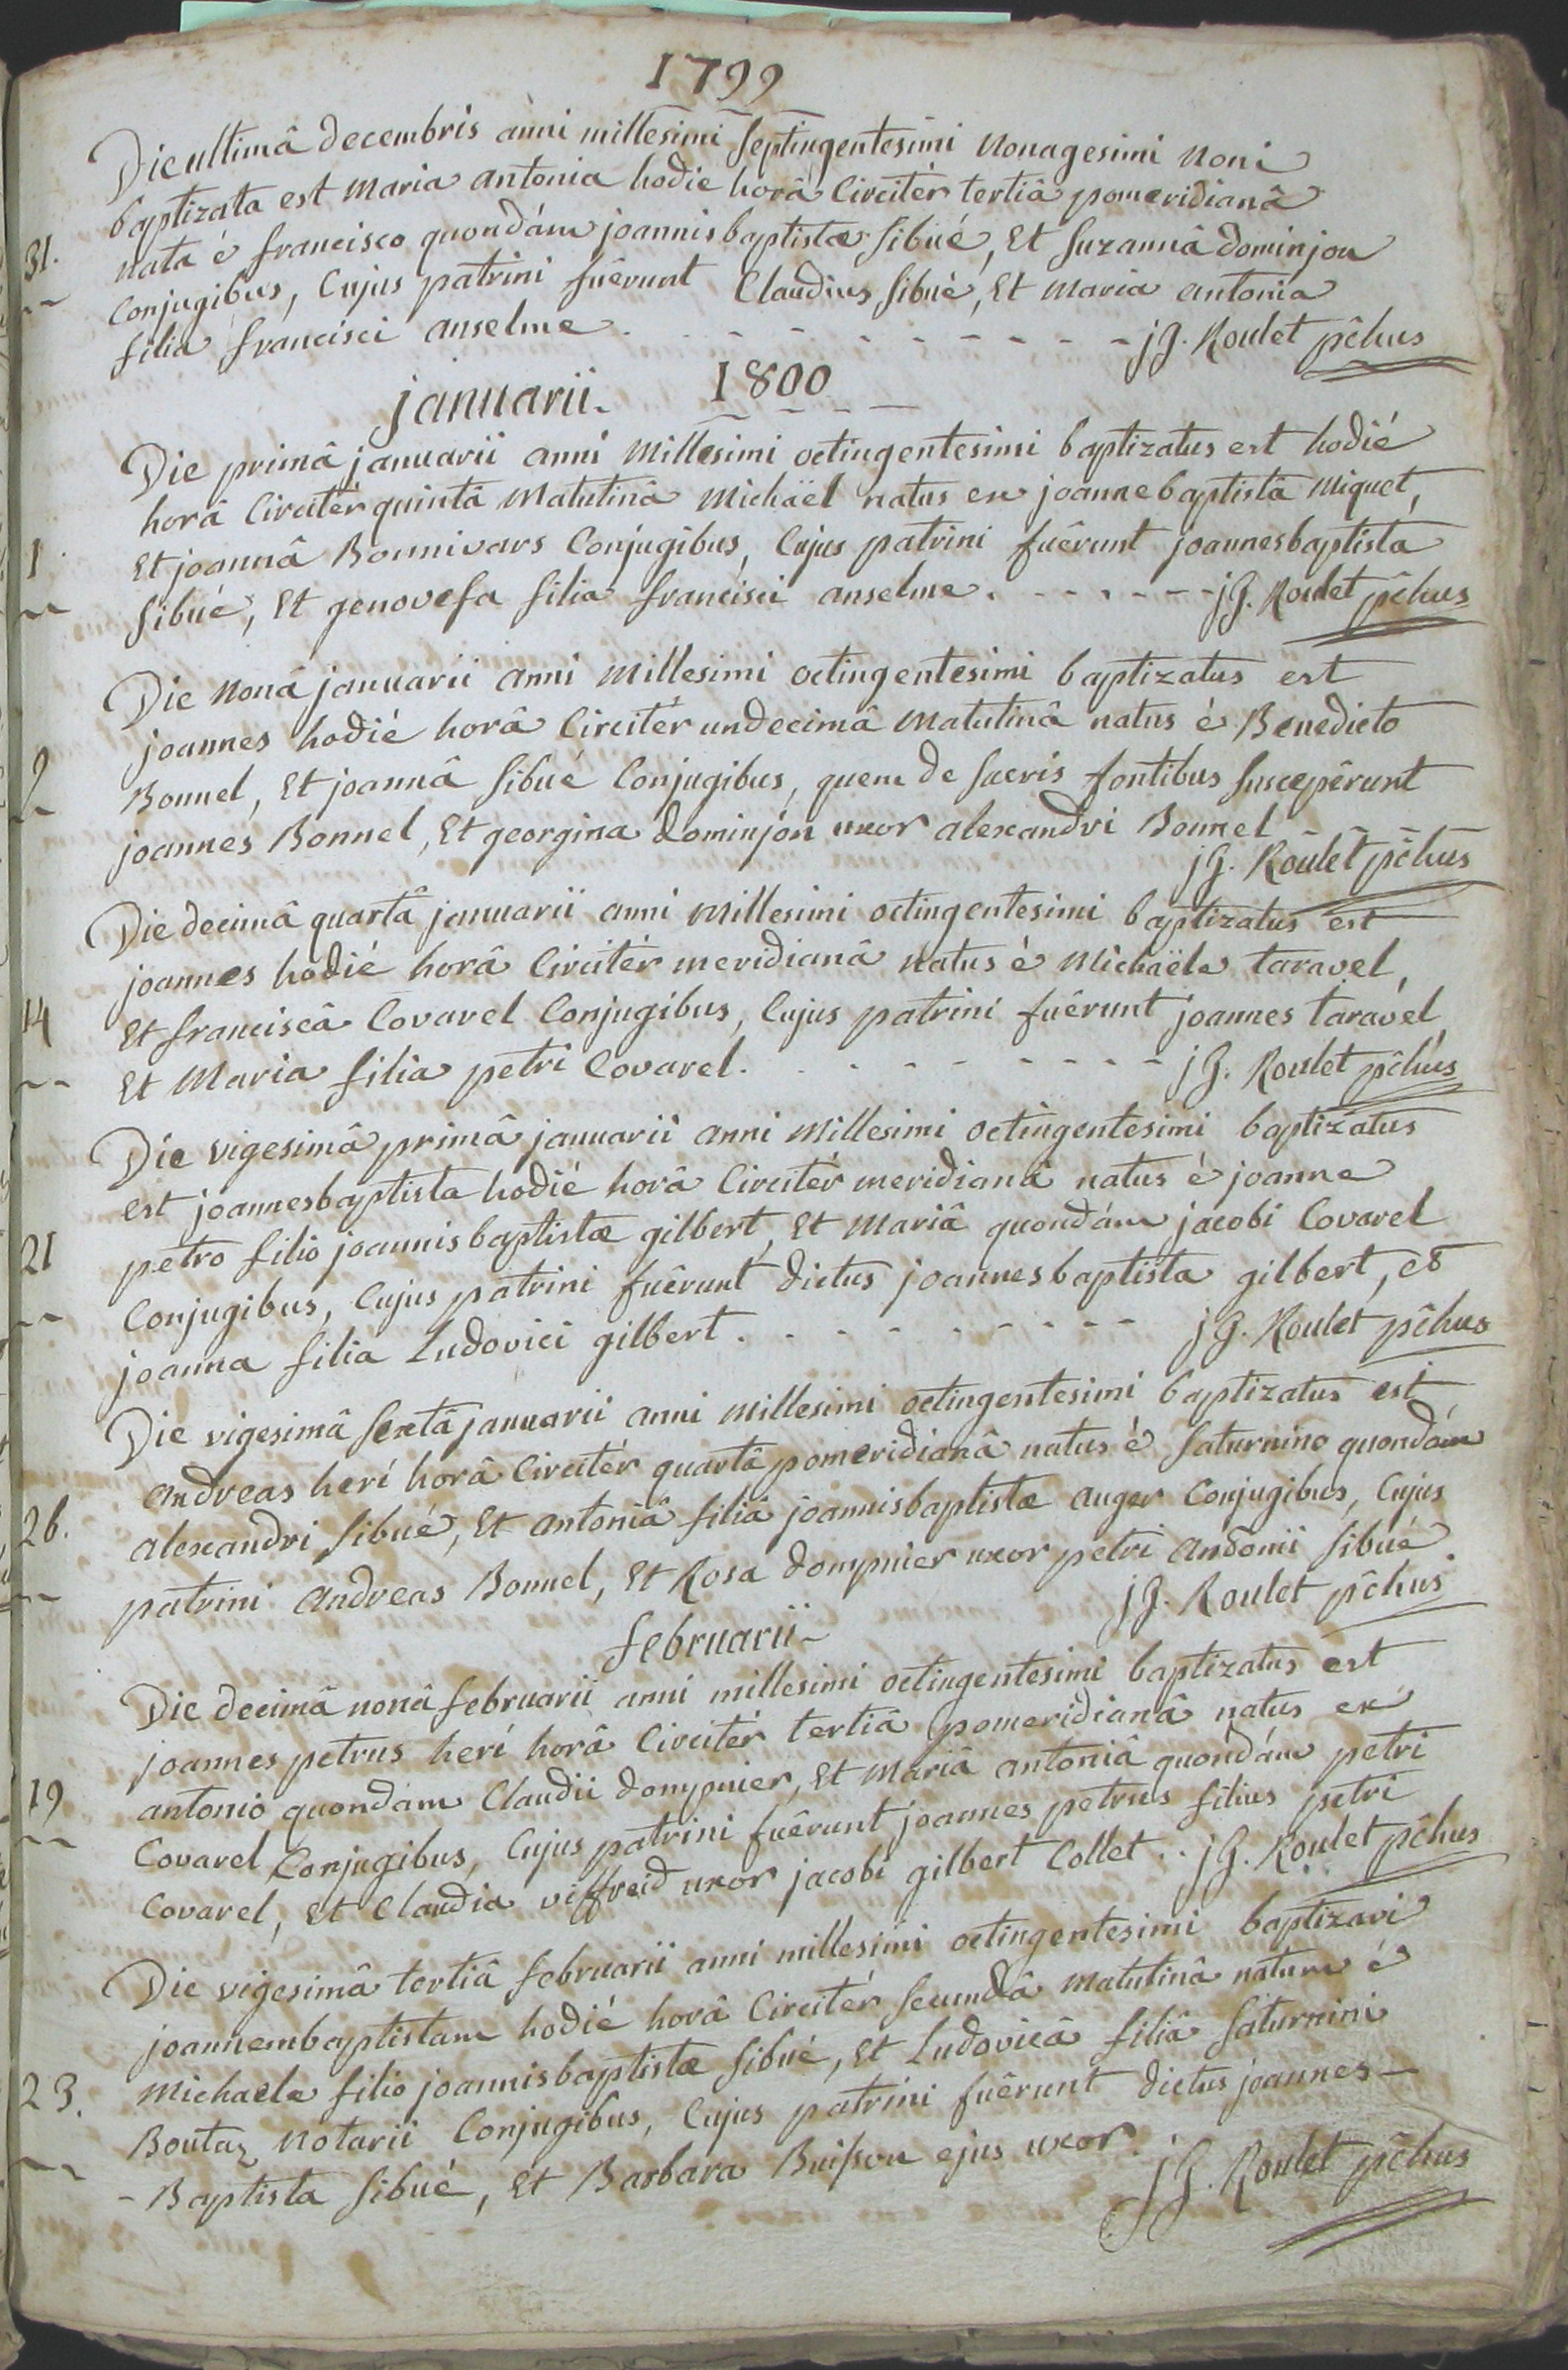 1799
Die ultimâ decembris anni millesimi septingentesimi nonagesimi noni
baptizata est maria antonia hodie horâ circitèr tertiâ pomeridianâ
31. nata é francisco quondám joannisbaptistæ sibué, Et suzannâ dominjon
conjugibus, cujus patrini fuêrunt Claudius sibué, Et maria antonia
filia francisci anselme. - - - - - - - - - jG. Roulet pĉhus
januarii. 1800
Die primâ januarii anni millesimi octingentesimi baptizatus est hodié
horâ circitér quintâ matutinâ michäel natus ex joannebaptistâ miquet,
1. Et joannâ Bonnivars conjugibus, cujus patrini fuêrunt joannesbaptista
sibué, Et genovefa filia francisci anselme. - - - - - jG. Roulet pĉhus
Die nonâ januarii anni millesimi octingentesimi baptizatus est
joannes hodié horâ circitér undecimâ matutinâ natus é Benedicto
9 Bonnel, Et joannâ sibué conjugibus, quem de sacris fontibus suscepêrunt
joannes Bonnel, Et georgina dominjon uxor alexandri Bonnel - - -
jG. Roulet pĉhus
Die decimâ quartâ januarii anni millesimi octingentesimi baptizatus est
joannes hodié horâ circitér meridianâ natus é michäele taravel,
14 Et franciscâ Covarel conjugibus, cujus patrini fuêrunt joannes taravel,
Et maria filia petri Covarel. - - - - - - - - jG. Roulet pĉhus
Die vigesimâ primâ januarii anni millesimi octingentesimi baptizatus
est joannesbaptista hodié horâ circitér meridianâ natus é joanne
21 petro filio joannisbaptistæ gilbert, Et mariâ quondám jacobi Covarel
conjugibus, cujus patrini fuêrunt dictus joannesbaptista gilbert, et
joanna filia Ludovici gilbert. - - - - - - - - - jG. Roulet pĉhus
Die vigesimâ sextâ januarii anni millesimi octingentesimi baptizatus est
andreas herí horâ circitér quartâ pomeridianâ natus é saturnino quondám
26. alexandri sibué, Et antoniâ filiâ joannisbaptistæ auger conjugibus, cujus
patrini andreas Bonnel, Et Rosa dompnier uxor petri andonii sibué.
jG. Roulet pĉhus
februarii
Die decimâ nonâ februarii anni millesimi octingentesimi baptizatus est
joannes petrus herí horâ circitér tertiâ pomeridianâ natus ex
19 antonio quondam Claudii dompnier, Et mariâ antoniâ quondám petri
Covarel conjugibus, cujus patrini fuêrunt joannes petrus filius petri
Covarel, Et Claudia viffreid uxor jacobi gilbert Collet. . jG. Roulet pĉhus
Die vigesimâ tertiâ februarii anni millesimi octingentesimi baptizavi
joannembaptistam hodié horâ circitér secundâ matutinâ natum é
23. michaele filio joannisbaptistæ sibué, Et Ludovicâ filiâ saturnini
Boutaz notarii conjugibus, cujus patrini fuêrunt dictus joannes-
-Baptista sibué, Et Barbara Buisson ejus uxor. jG. Roulet pĉhus